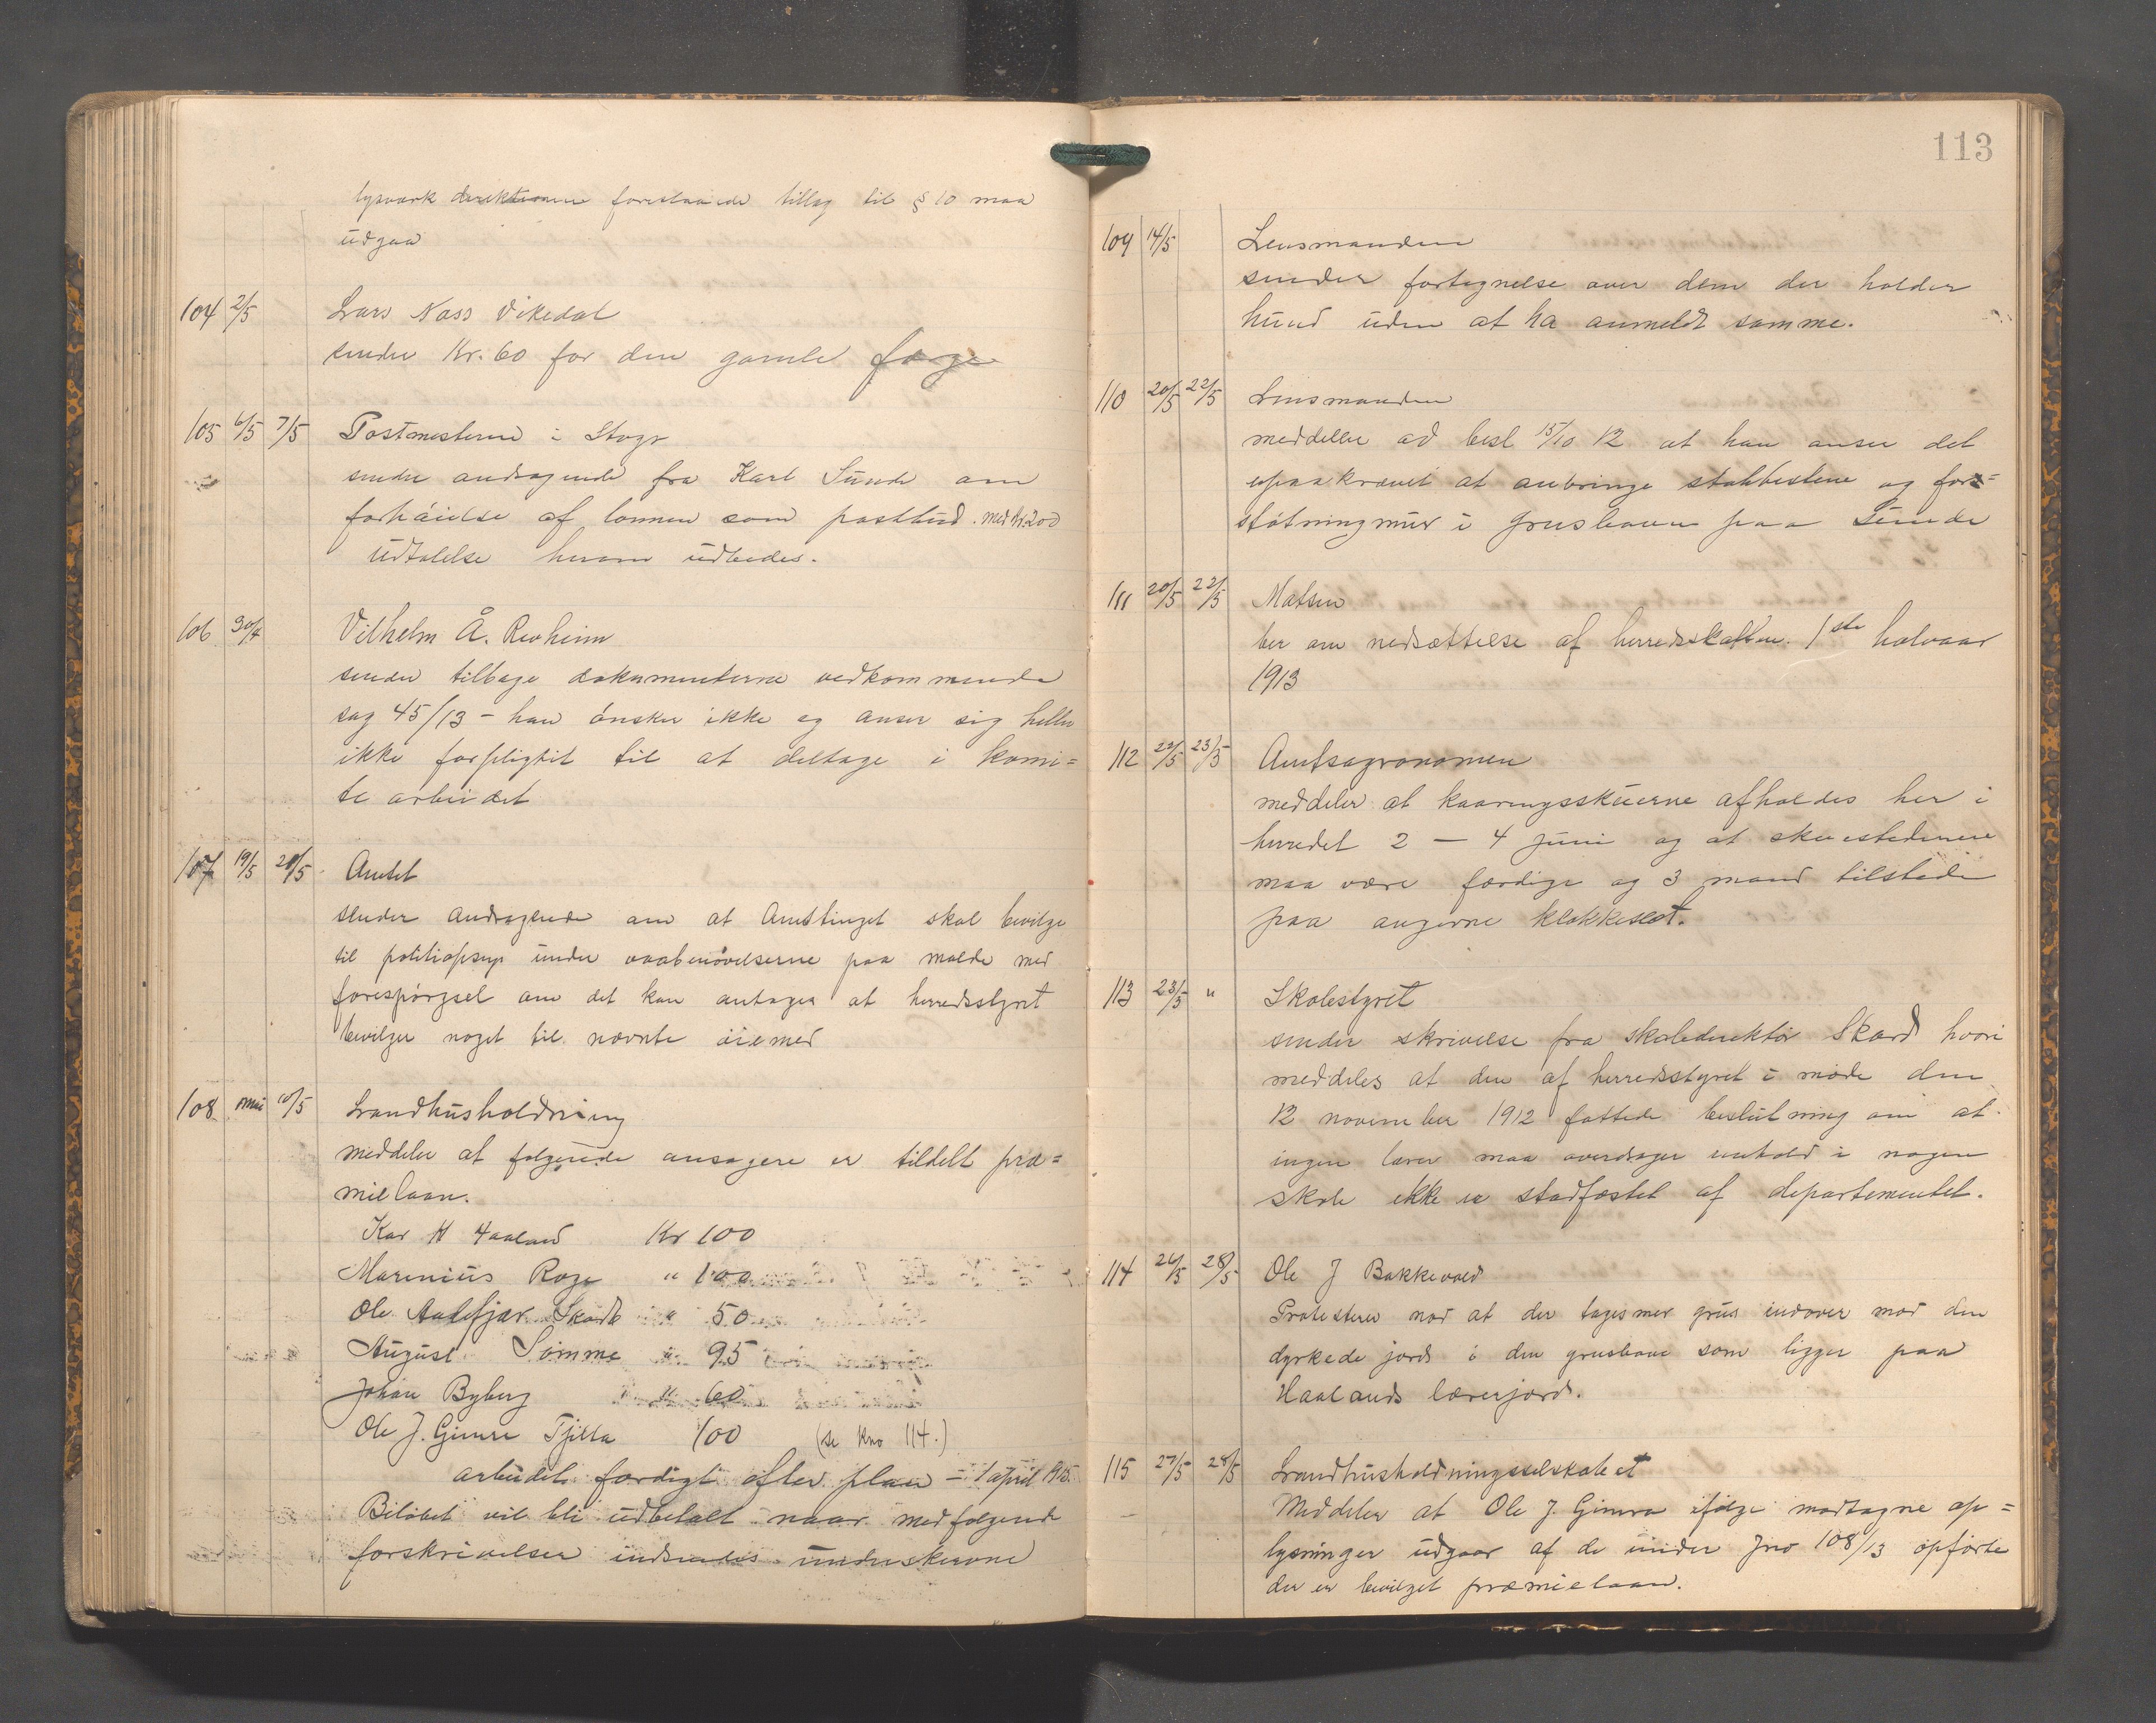 lysværk direktionen foreslaaede tillæg til § 10 maa
udgaa
104 2/5 Lars Næss Vikedal
sender Kr. 60 for den gamle færge
105 6/5 7/5 Postmesteren i Stvgr
sender andragende fra Karl Sunde om
forhöielse af lönnen som postbud. med Kr. 200
Udtalelse herom udbedes.
106 30/4 Vilhelm Å. Revheim
sender tilbage dokumenterne vedkommende
sag 45/13 - han önsker ikke og anser sig heller
ikke forpligtet til at deltage i komi=
te arbeidet
107 19/5 20/5 Amtet
sender andragende om at Amtstinget skal bevilge
til politiopsyn under vaabenövelserne paa Malde med
forespörgsel om det kan antages at herredsstyret
bevilger noget til nævnte öiemed
108 mai 10/5 Landhusholdning
meddeler at fölgende ansögere er tildelt præ=
mielaan.
Kar H Haaland Kr 100
Marinius Rage " 100
Ole Skade " 50
August Sömme " 95
Johan Byberg " 60
Ole J. Gimre Tjilta 100 (se Jno 114.)
arbeidet færdigt efter plan - 1 april 1915.
Belöbet vil bli udbetalt naar medfölgende
forskrivelser indsendes underskrevne
113
109 14/5 Lensmanden
sender fortegnelse over dem der holder
hund uden at ha anmeldt samme.
110 20/5 22/5 Lensmanden
meddeler ad besl 15/10 12 at han anser det
upaakrævet at anbringe stabbestene og for=
stötningmur i grushaven paa Sunde
111 20/5 22/5 Matsen
ber om nedsættelse af herredsskatten 1ste halvaar
1913
112 22/5 23/5 Amtsagronomen
meddeler at kaaringsskuerne afholdes her i
herredet 2 - 4 juni og at skuestederne
maa være færdige og 3 mand tilstede
paa angivne klokkeslet.
113 23/5 " Skolestyret
sender skrivelse fra skoledirektör Skard hvori
meddeles at den af herredsstyret i möde den
12 november 1912 fattede beslutning om at
ingen lærer maa overdrages renhold i nogen
skole ikke er stadfæstet af departementet.
114 26/5 28/5 Ole J Bakkevold
Protesterer mod at der tages mer grus indover mod den
dyrkede jord i den grushave som ligger paa
Haalands lærerjord.
115 27/5 28/5 Landhusholdningsselskabet
Meddeler at Ole J. Gimra ifölge modtagne op=
lysninger udgaar af de under Jno 108/13 opförte
der er bevilget præmielaan.